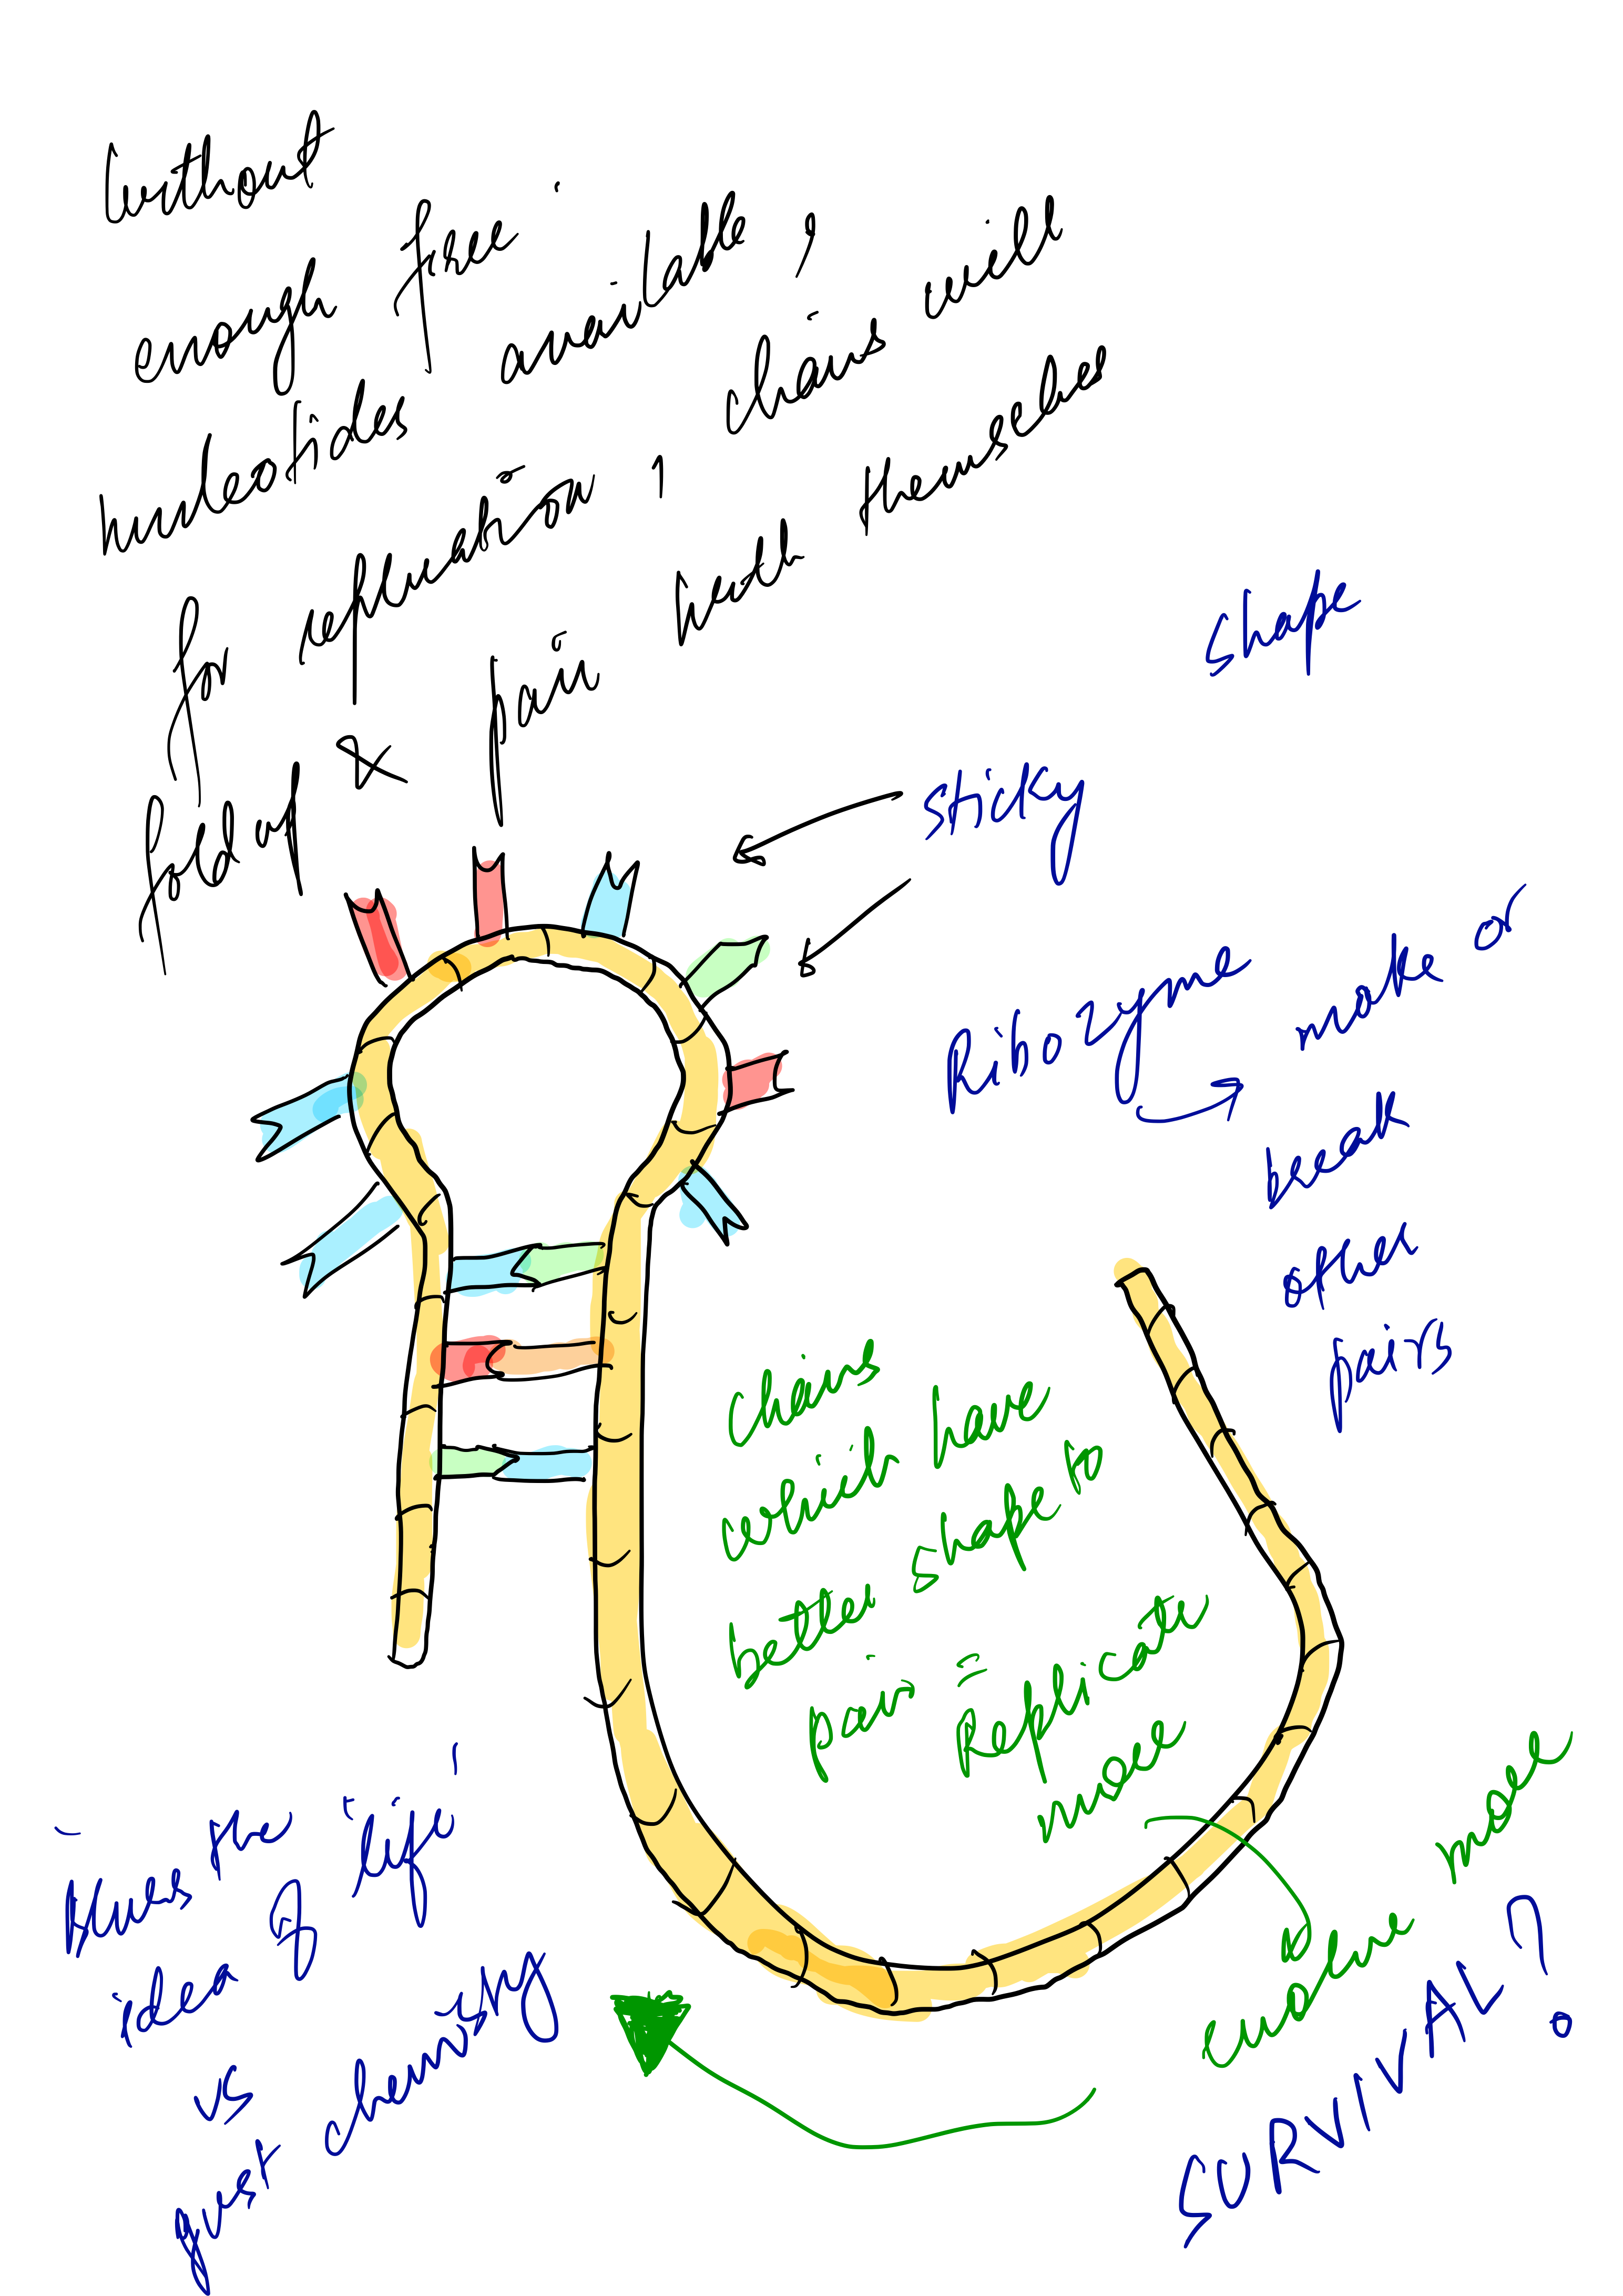 without
enough free
nucleotides available ,
for replication , chains will
fold up & pair with themselves
shape
sticky
Ribozyme
make or
break
other
pairs
Chains
which have
better shape to
pair = Replicate
more
evolve more
SURVIVAL?
Blurs the
idea of 'life'
vs
just chemistry